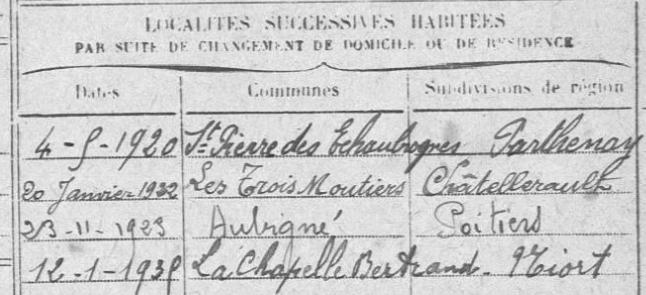 LOCALITÉS SUCCESSIVES HABITÉES
PAR SUITE DE CHANGEMENT DE DOMICILE OU DE RÉSIDENCE
Dates Communes Subdivisions de région
4-5-1920 St Pierre des Echaubrognes Parthenay
20 Janvier 1922 Les Trois Moutiers Châtellerault
23-11-1923 Aubigné Poitiers
12-1-1935 La Chapelle Bertrand - Niort